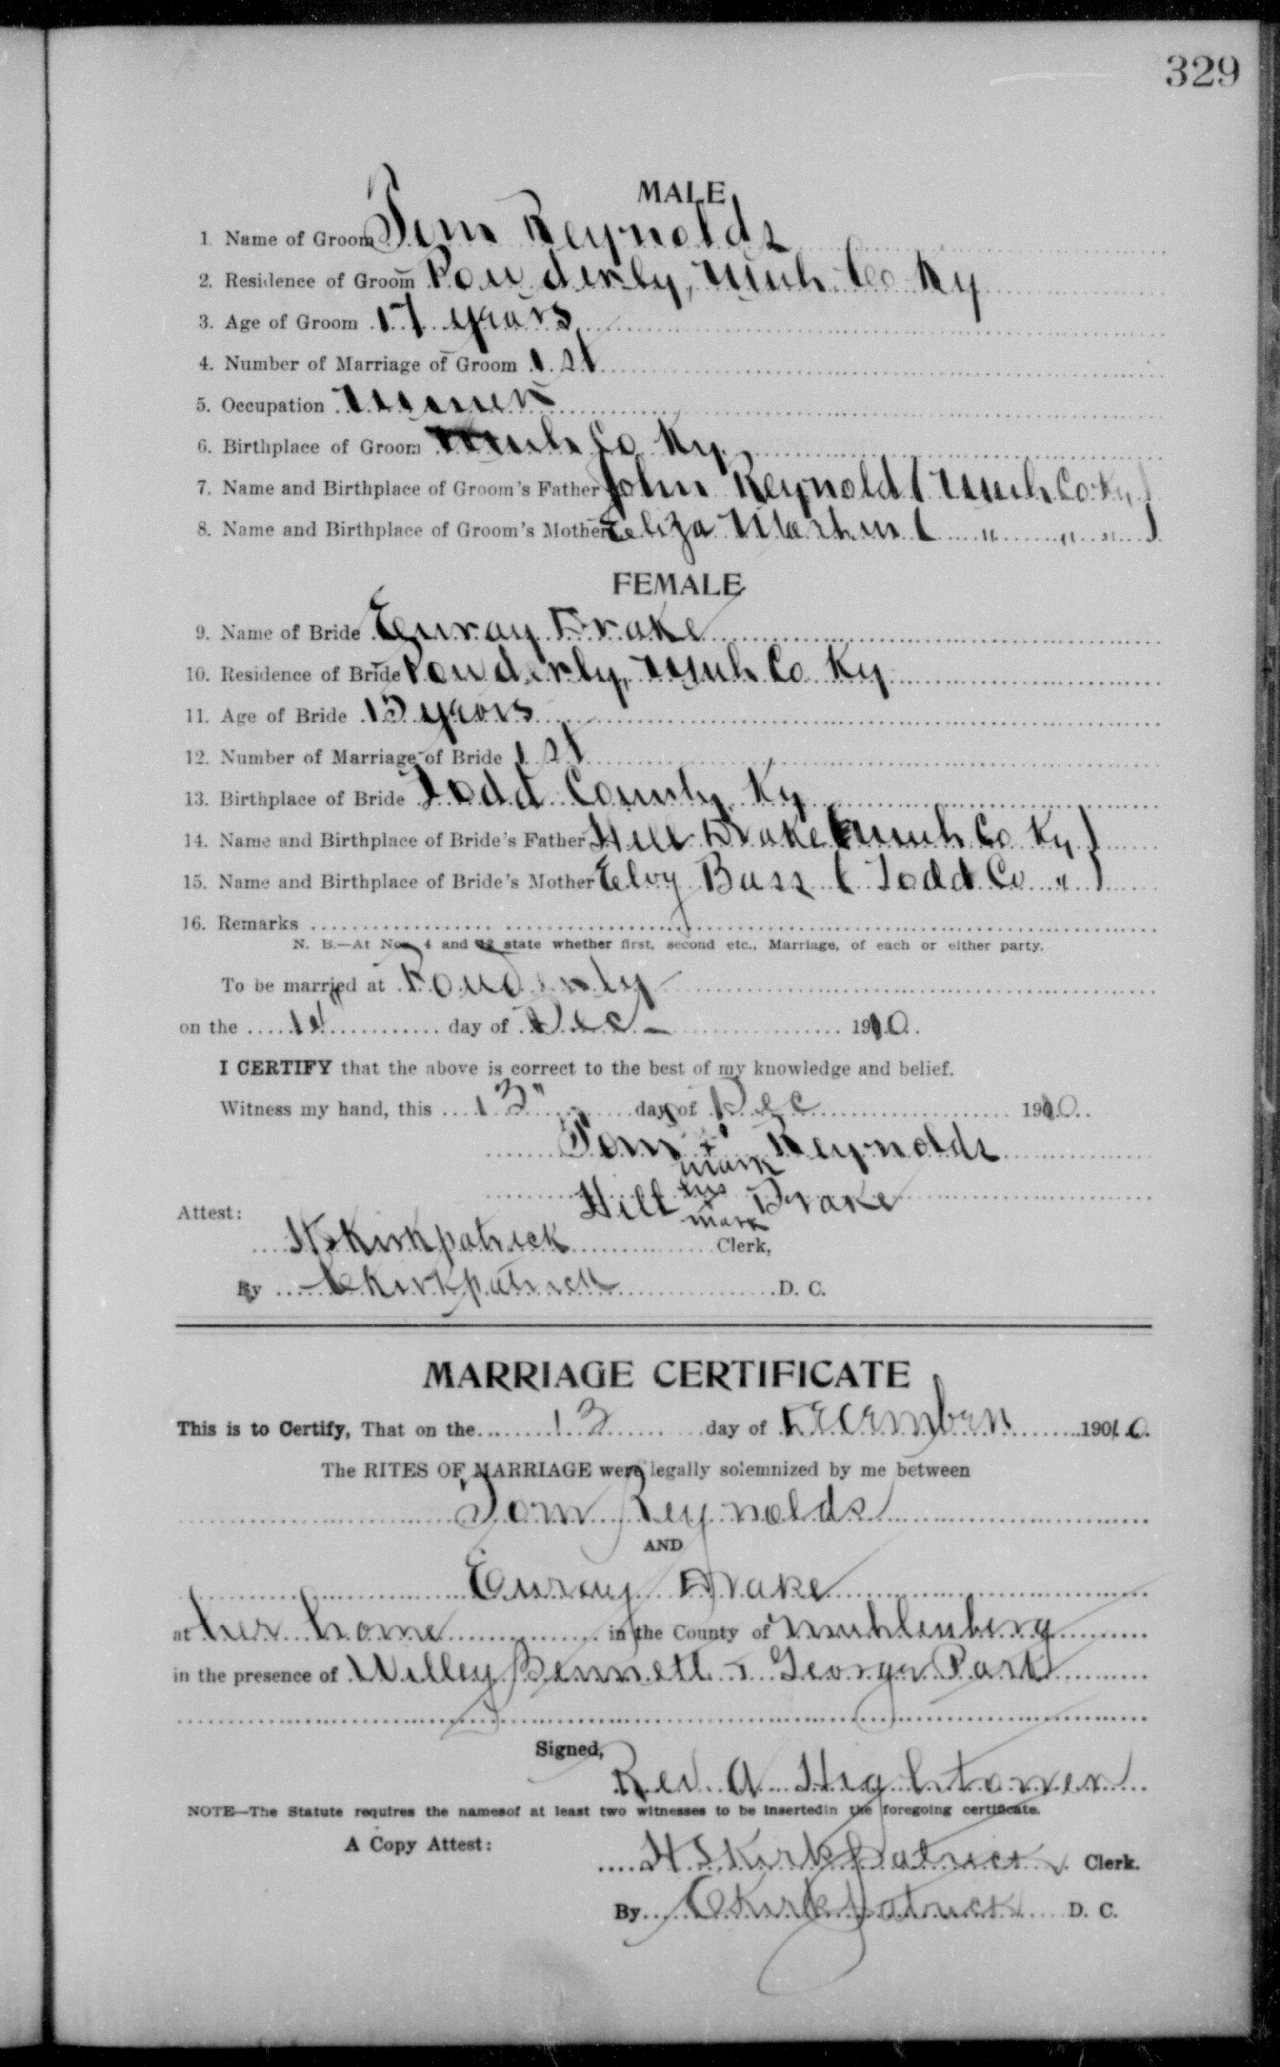 329
MALE
1. Name of Groom Tom Reynolds
2. Residence of Groom Powderly, Muh. Co Ky
3. Age of Groom 17 years
4. Number of Marriage of Groom 1st
5. Occupation Miner
6. Birthplace of Groom Muh Co Ky
7. Name and Birthplace of Groom's Father John Reynolds (Muh. Co. Ky)
8. Name and Birthplace of Groom's Mother Eliza Martin ( " " " )
FEMALE
9. Name of Bride Euray Drake
10. Residence of Bride Powderly, Muh Co Ky
11. Age of Bride 15 years
12. Number of Marriage of Bride 1st
13. Birthplace of Bride Todd County Ky
14. Name and Birthplace of Bride's Father Hill Drake (Muh Co Ky)
15. Name and Birthplace of Bride's Mother Elvy Bass (Todd Co " )
16. Remarks
N. B.—At Nos. 4 and 12 state whether first, second etc., Marriage, of each or either party.
To be married at Powderly
on the 14" day of Dec 1910
I CERTIFY that the above is correct to the best of my knowledge and belief.
Witness my hand, this 13" day of Dec 1910
Tom x Reynolds
mark
his
Hill x Drake
mark
Attest:
Kirkpatrick Clerk,
By C Kirkpatrick D. C.
MARRIAGE CERTIFICATE
This is to Certify, That on the 13 day of December 1910
The RITES OF MARRIAGE were legally solemnized by me between
Tom Reynolds
AND
Euray Drake
at her home in the County of Muhlenberg
in the presence of Willey Bennett + George Park
Signed,
Rev. A Hightower
NOTE—The Statute requires the namesof at least two witnesses to be insertedin the foregoing certificate.
A Copy Attest:
Kirkpatrick Clerk.
By C Kirkpatrick D. C.